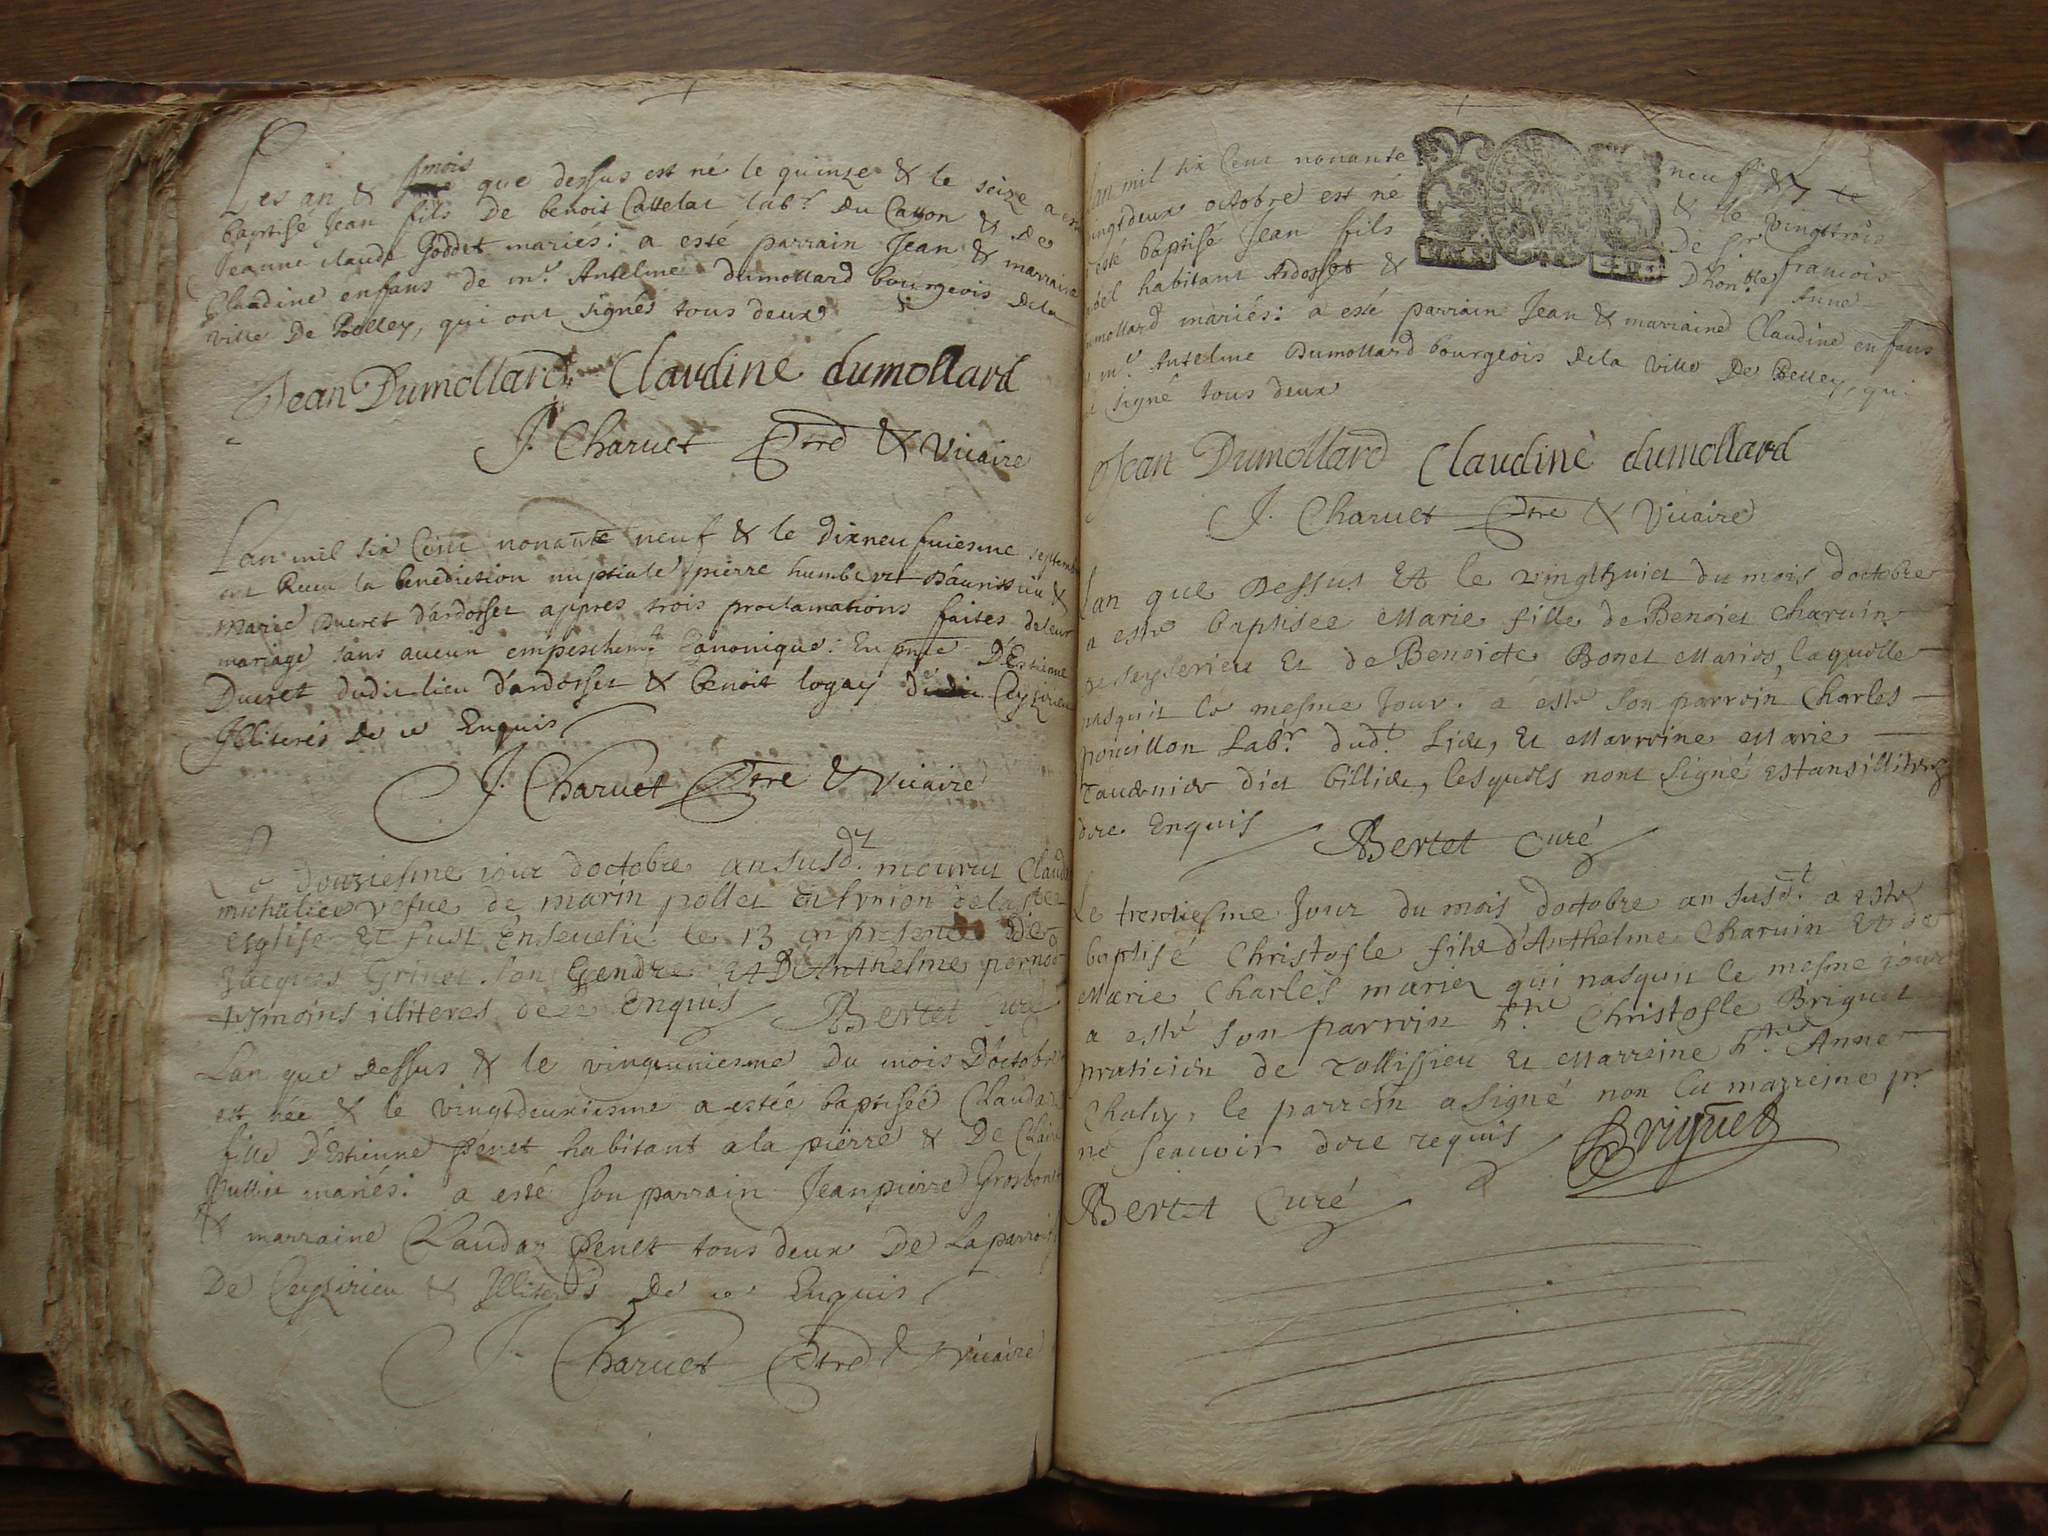 Les an & mois que dessus est né le quinze & le seize a esté
baptisé Jean fils De benoit Cattelat lab.r Du Catton & De
Jeanne claude Goddet mariés: a esté parrain Jean & marraine
Claudine enfans de m.e Antelme dumollard bourgeois Dela
ville De Belley, qui ont signés tous deux
Jean Dumollard Claudine dumollard
J. Charuet Ptre & Vicaire
Lan mil six Cent nonante neuf & le dixneufuiesme septembre
ont Receu la benediction nuptiale pierre humbert &
Marie Ducret d'ardosset appres trois proclamations faites deleur
mariage sans aucun empeschem.t Canonique: En pnce D'Estienne
Ducret dudit lieu d'ardosset & benoit logay de Ceyzirieu
Illiterés De ce Enquis
J. Charuet Ptre & Vicaire
Le douziesme iour doctobre an susd.t mourut Claude
michallieu vefue de marin pollet En lvnion dela ste
esglise Et fust Enseuelie le 13 en presence De
Jacques Grinet son Gendre Et D'Anthelme pernod
tesmoins illiteres de ce Enquis Bertet Curé
Lan que dessus & le vingtuniesme du mois D'octobre
est née & le vingtdeuxiesme a estée baptisée Claudaz
fille D'Estienne Penet habitant a la pierre & De Claire
Jullin mariés: a esté son parrain Jeanpierre Grosbonet
& marraine Claudaz Penet tous deux De La parroisse
De Ceyzirieu & Illiterés De ce Enquis
J. Charuet Ptre & Vicaire
Lan mil six Cent nonante neuf & le
vingtdeux octobre est né & le vingttrois
a esté baptisé Jean fils De Sr. francois
habitant Ardosset & D'hon.ble Anne
Dumollard mariés: a esté parrain Jean & marraine Claudine enfans
m.e Antelme Dumollard bourgeois Dela Ville De Belley, qui
ont signé tous deux
Jean Dumollard Claudine dumollard
J. Charuet Ptre & Vicaire
Lan que Dessus Et le vingthuict du mois doctobre
a esté baptisee Marie fille de Benoict Charuin
de Seyserieu Et de Benoicte Bonet Mariés, laquelle
nasquit le mesme Jour. a esté son parrein Charles
ponillon Lab.r dud.t Lieu, Et Marreine Marie
Tauernier dict billiet, lesquels nont signé estans illiteres
de ce Enquis Bertet Curé
Le trentiesme Jour du mois doctobre an susd.t a esté
baptisé Christofle fils d'Anthelme Charuin Et de
Marie Charles mariez qui nasquit le mesme iour
a esté son parrein h.ble Christofle Briguet
praticien de Tallissieu Et Marreine h.ble Anne
Chaley, le parrein a signé non La marreine pr
ne scauoir de ce requis Briguet
Bertet Curé